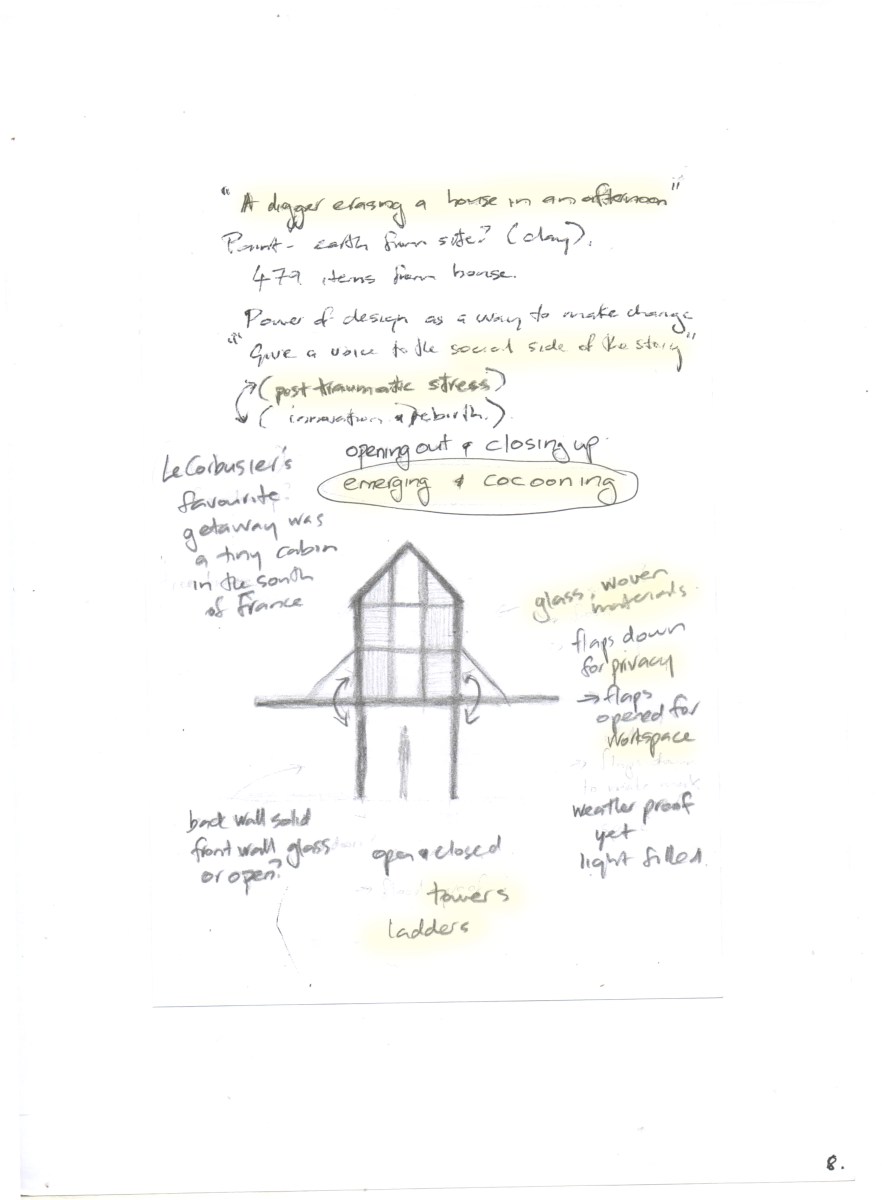 "A digger erasing a house in an afternoon"
Paint - earth from site? (clay).
479 items from house.
Power of design as a way to make change
"Give a voice to the social side of the story"
(post traumatic stress)
(innovation & rebirth.)
opening out & closing up.
emerging & cocooning
Le Corbusier's
favourite
getaway was
a tiny cabin
in the south
of France
glass, woven
materials.
flaps down
for privacy
→ flaps
opened for
workspace
back wall solid
front wall glass
or open?
open & closed
weather proof
yet
light filled.
towers
ladders
8.